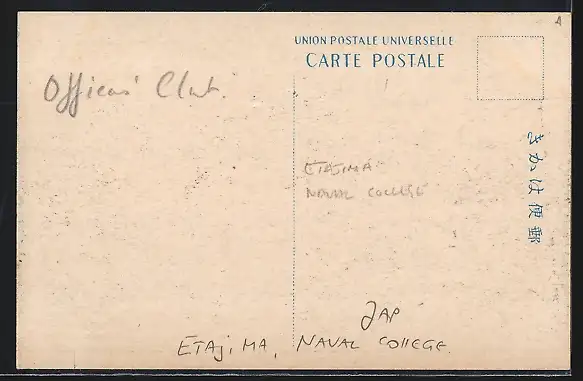 UNION POSTALE UNIVERSELLE
CARTE POSTALE
Officers' Club.
きかは便郵
ETAJIMA
NAVAL COLLEGE
JAP
ETAJIMA, NAVAL COLLEGE.